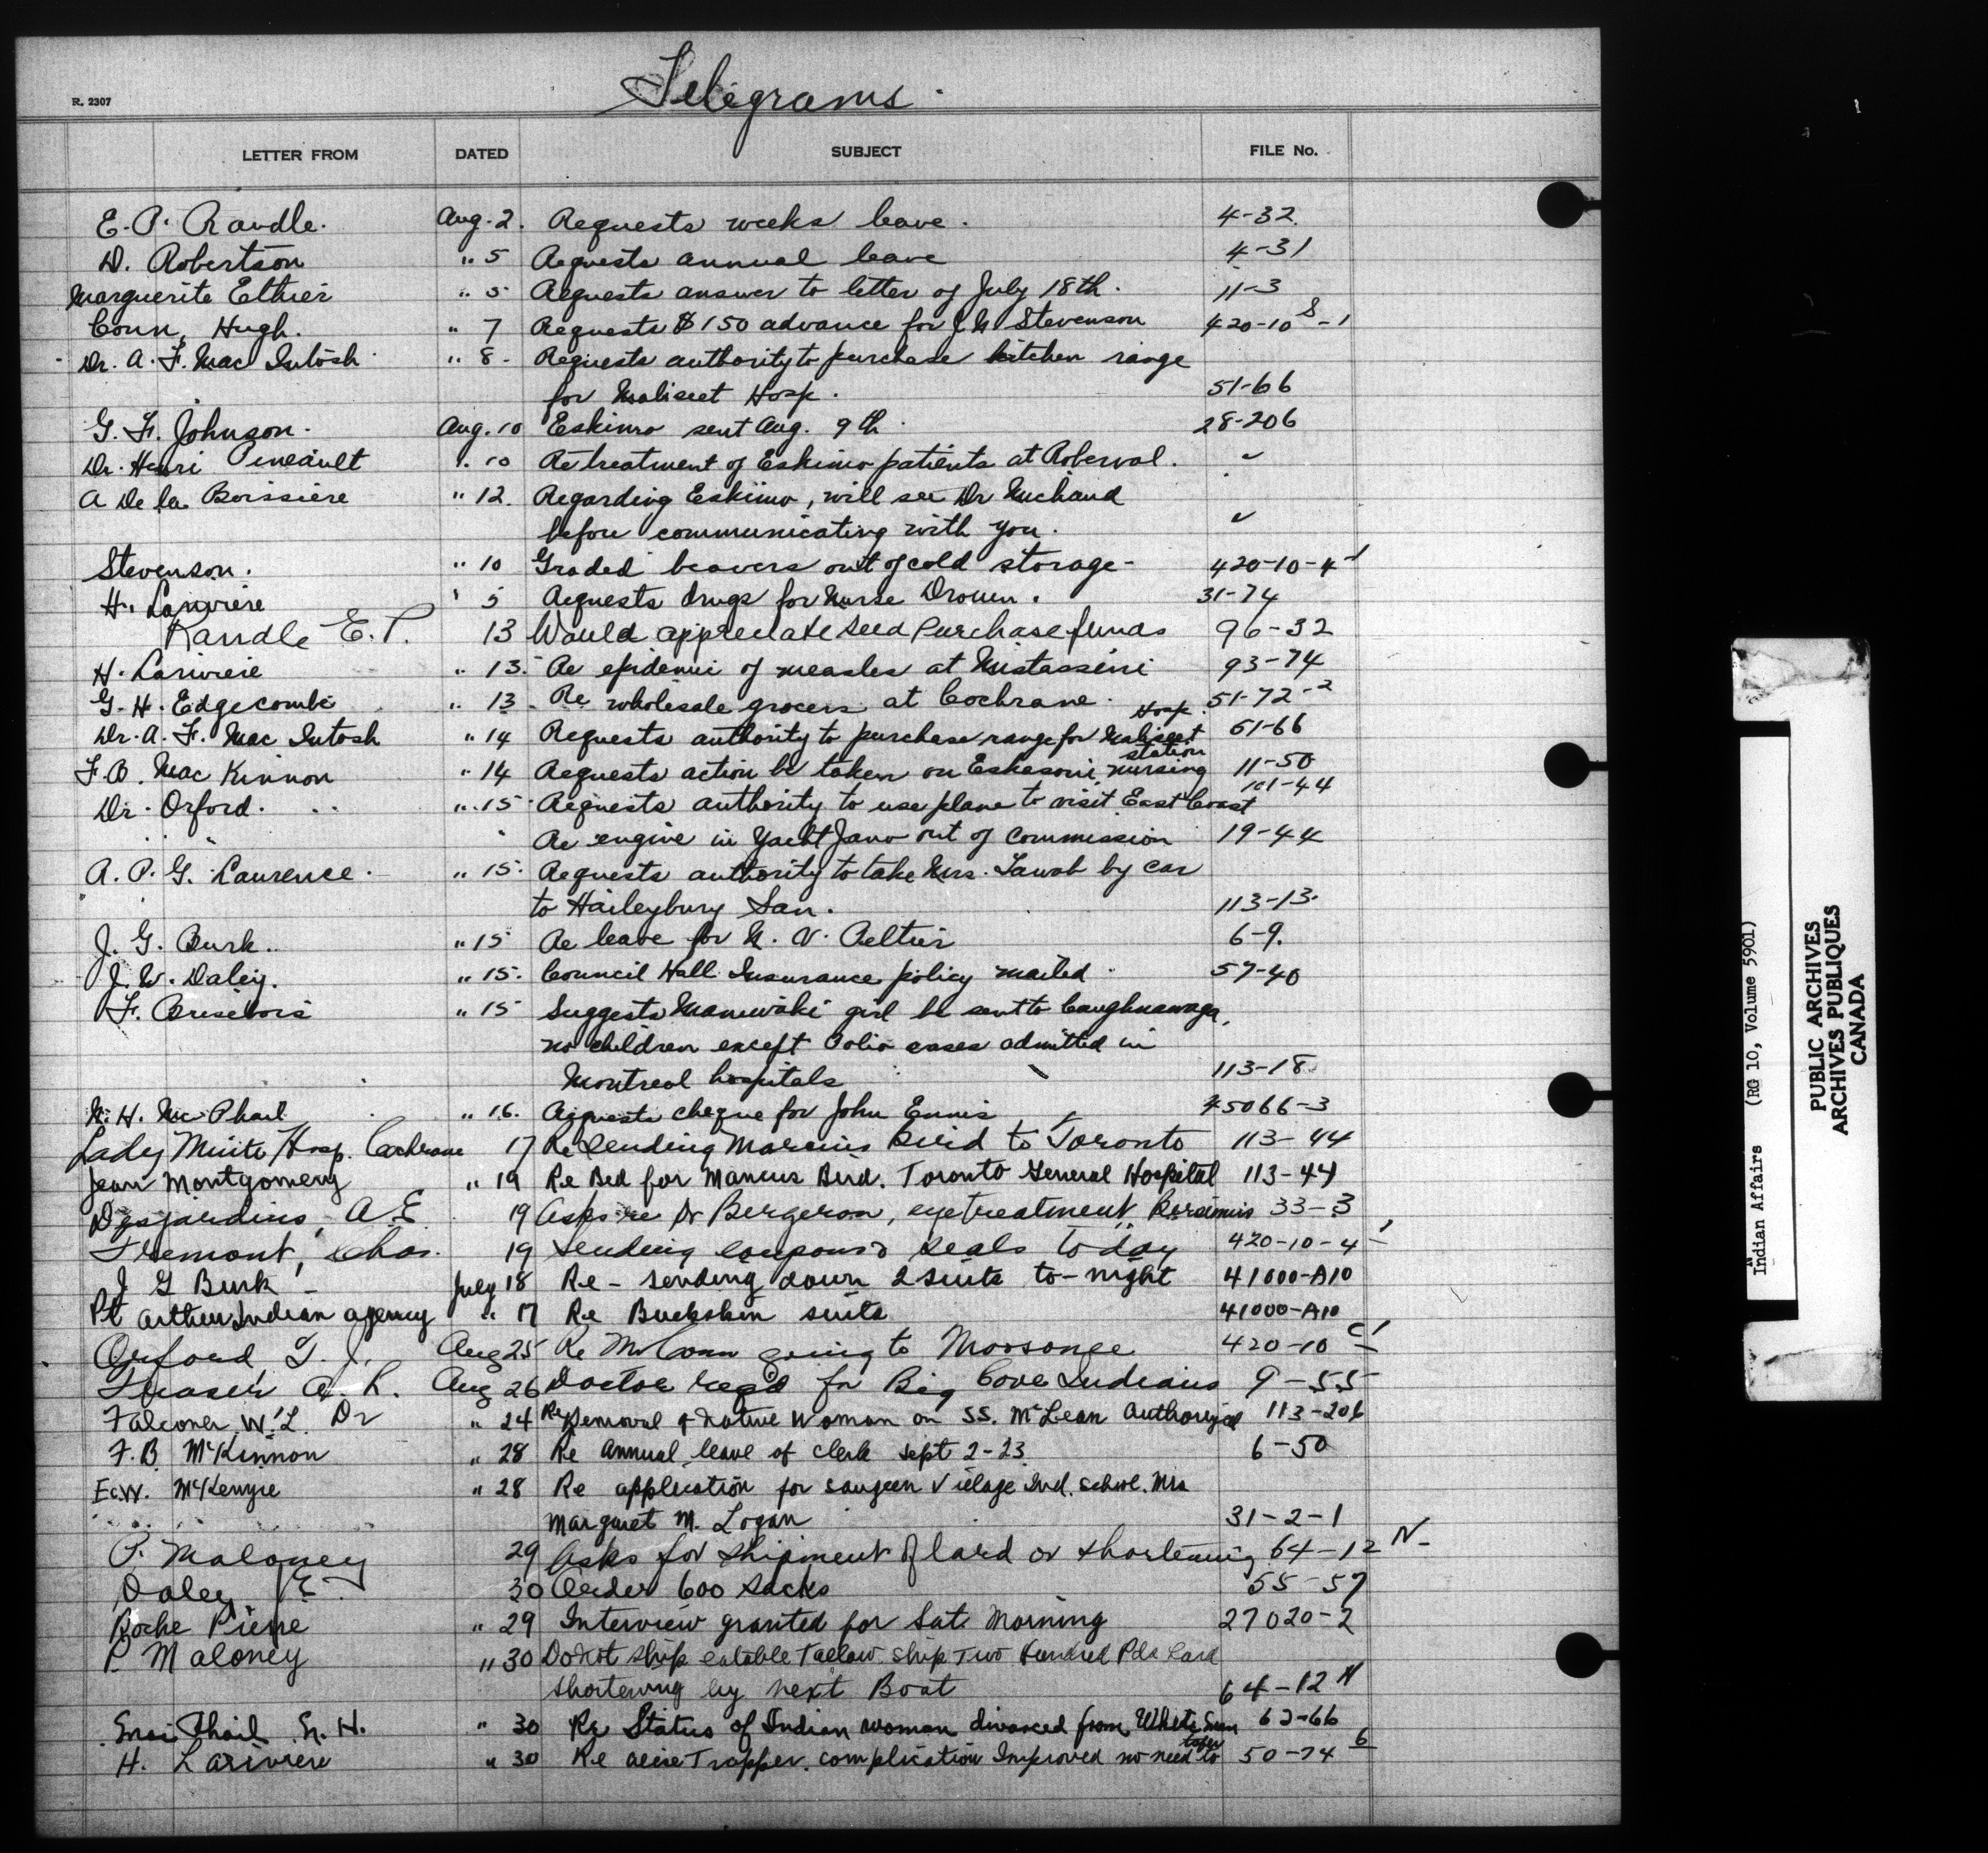 Telegrams
R. 2307
LETTER FROM DATED SUBJECT FILE No.
E. P. Randle. Aug. 2. Requests weeks leave. 4-32
D. Robertson " 5 Requests annual leave 4-31
Marguerite Ethier " 5 Requests answer to letter of July 18th. 11-3
Conn, Hugh. " 7 Requests $150 advance for J. W. Stevenson 420-10 S-1
Dr. A. F. MacIntosh " 8 Requests authority to purchase kitchen range
for Maliseet Hosp. 51-66
G. F. Johnson. Aug. 10 Eskimo sent Aug. 9th 28-206
Dr. Henri Pineault " 10 Re treatment of Eskimo patients at Roberval. "
A De la Boissiere " 12. Regarding Eskimo, will see Dr Michaud
before communicating with you. "
Stevenson. " 10 Graded beavers out of cold storage - 420-10-4-1
H. Lariviere " 5 Requests drugs for Nurse Drouin. 31-74
Randle E. P. 13 Would appreciate seed purchase funds 96-32
H. Lariviere " 13. Re epidemic of measles at Mistassini 93-74
G. H. Edgecombe " 13 Re wholesale grocers at Cochrane. 51-72-2
Dr. A. F. MacIntosh " 14 Requests authority to purchase range for Maliseet Hosp. 51-66
F. B. MacKinnon " 14 Requests action be taken on Eskasoni nursing station 11-50
Dr. Orford. " 15 Requests authority to use plane to visit East Coast 101-44
" " Re engine in Yacht out of commission 19-44
A. P. G. Laurence. " 15. Requests authority to take Mrs. by car
to Haileybury San. 113-13.
J. G. Burk. " 15 Re leave for N. V. Peltier 6-9.
J. W. Daley. " 15. Council Hall Insurance policy mailed. 57-40
F. Brisebois " 15 Suggests Maniwaki girl be sent to Caughnawaga,
no children except Polio cases admitted in
Montreal hospitals 113-18
N. H. McPhail " 16. Requests cheque for John Ennis 45066-3
Lady Minto Hosp. Cochrane 17 Re sending Marcius Bird to Toronto 113-44
Jean Montgomery " 19 Re Bed for Marcus Bird. Toronto General Hospital 113-44
Desjardins, A E. 19 Asks re Dr Bergeron, eye treatment Bersimis 33-3
Fremont, Chas. 19 Sending coupons & seals today 420-10-4-1
J G Burk July 18 Re - sending down 2 suits to-night 41000-A10
Pt Arthur Indian agency " 17 Re Buckskin suits 41000-A10
Orford, T. J. Aug 25 Re Mr Conn going to Moosonee 420-10 C-1
Fraser A. R. Aug 26 Doctor reqd for Big Cove Indians 9-55
Falconer W. L Dr " 24 Re Removal of native Woman on SS. McLean Authorized 113-206
F. B. McKinnon " 28 Re Annual leave of clerk Sept 2-23 6-50
E.W. McKenzie " 28 Re application for Saugeen Village Ind. School. Mrs
Margaret M. Logan 31-2-1
P. Maloney 29 Asks for shipment of lard or shortening 64-12 N-
Daley E. 30 Order 600 sacks 55-57
Roche Pierre " 29 Interview granted for Sat. Morning 27020-2
P. Maloney " 30 Do not ship eatable Tallow. ship Two Hundred Pds Lard
shortening by next Boat 64-12 N
Phail N. H. " 30 Re Status of Indian woman divorced from White Man 62-66
H. Lariviere " 30 Re Trapper. complication Improved no need to 50-74 6
Indian Affairs (RG 10, Volume 5901)
PUBLIC ARCHIVES
ARCHIVES PUBLIQUES
CANADA